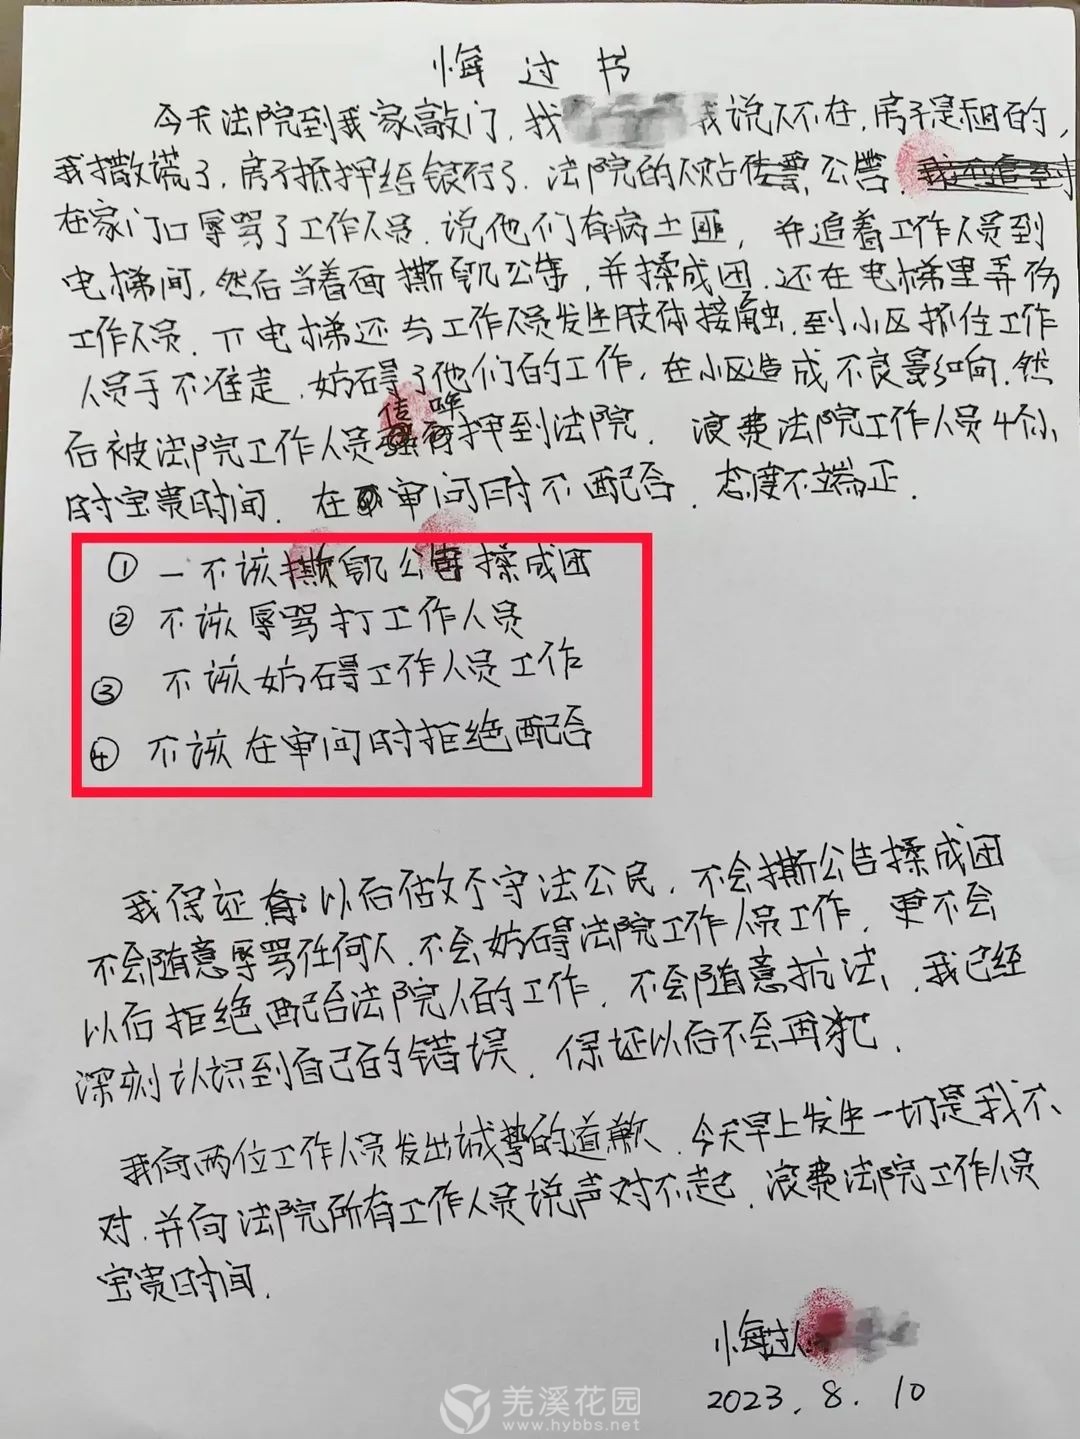 悔过书
今天法院到我家敲门，我 我说人不在，房子是租的，
我撒谎了，房子抵押给银行了．法院的人贴传票，公告．
在家门口辱骂了工作人员．说他们有病土匪，并追着工作人员到
电梯间，然后当着面撕毁公告，并揉成团．还在电梯里弄伤
工作人员．下电梯还与工作人员发生肢体接触．到小区抓住工作
人员手不准走．妨碍了他们的工作，在小区造成不良影响．然
后被法院工作人员传唤到法院．浪费法院工作人员4个小
时宝贵时间．在审问时不配合．态度不端正．
① 一不该撕毁公告揉成团
② 不该辱骂打工作人员
③ 不该妨碍工作人员工作
④ 不该在审问时拒绝配合
我保证：以后做个守法公民，不会撕公告揉成团
不会随意辱骂任何人．不会妨碍法院工作人员工作，更不会
以后拒绝配合法院人的工作，不会随意抗法，我已经
深刻认识到自己的错误．保证以后不会再犯．
我向两位工作人员发出诚挚的道歉．今天早上发生一切是我不
对．并向法院所有工作人员说声对不起．浪费法院工作人员
宝贵时间．
悔过人：
2023．8．10
羌溪花园
www.hybbs.net